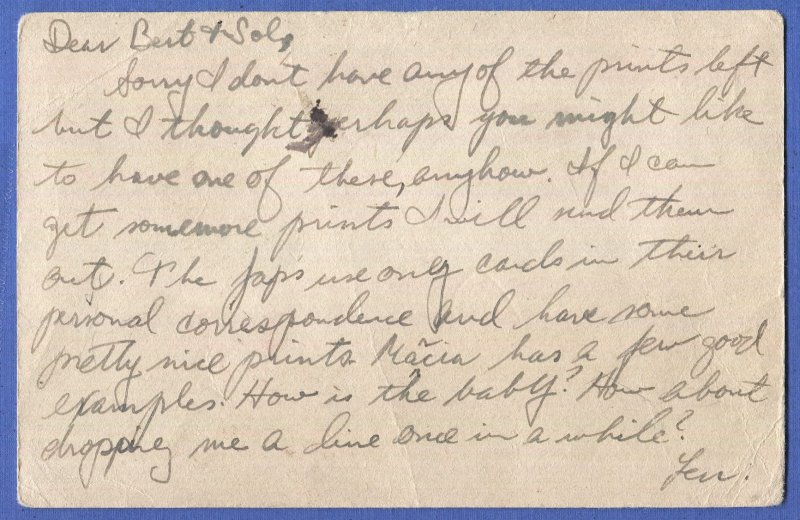 Dear Bert & Sol,
Sorry I dont have any of the prints left
but I thought perhaps you might like
to have one of these, anyhow. If I can
get somemore prints I will send them
out. The Japs use only cards in their
personal correspondence and have some
pretty nice prints. has a few good
examples. How is the baby? How about
dropping me a line once in a while?
Len.